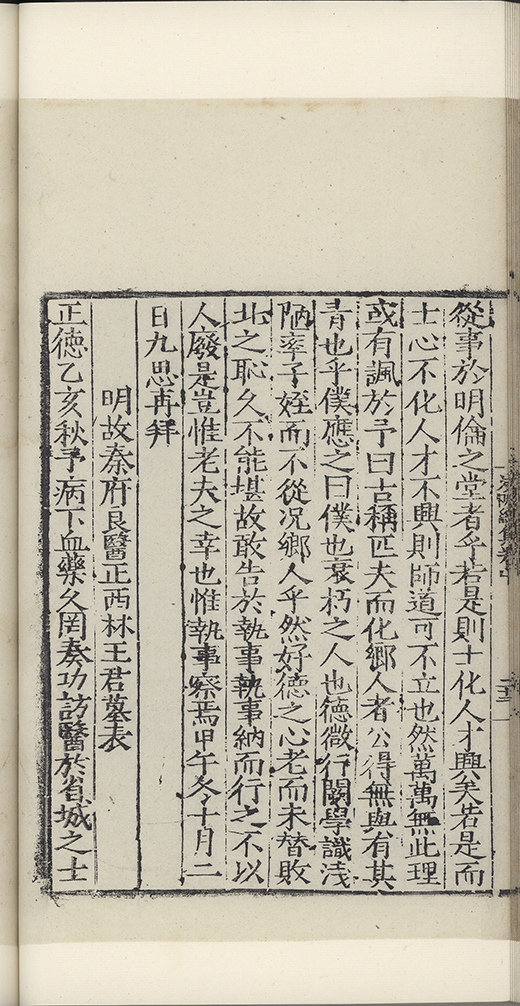 從事於明倫之堂者乎若是則士化人才興矣若是而
士心不化人才不興則師道可不立也然萬萬無此理
或有諷於予曰古稱匹夫而化鄉人者公得無與有其
青也乎僕應之曰僕也衰朽之人也德微行闕學識浅
陋率子姪而不從况鄉人乎然好德之心老而未替敗
北之恥久不能堪故敢告於執事執事納而行之不以
人廢是豈惟老夫之幸也惟執事察焉甲午冬十月二
日九思再拜
明故秦府良醫正西林王君墓表
正德乙亥秋予病下血藥久罔奏功訪醫於省城之士